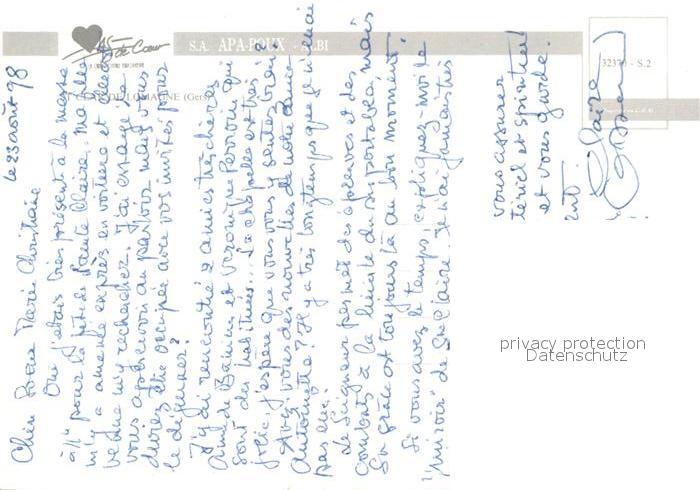 As de Cœur
S.A. APA-POUX - ALBI
DE LOMAGNE (Gers)
32370 - S.2
le 23 août 98
Chère Sœur Marie Christiane
Oui j'étais bien présente à la messe
à 11h pour la fête de Sainte Claire, ma fille
m'y a amenée exprès en voiture et elle est
venue me rechercher. J'ai essayé de
vous apercevoir au parloir mais vous
deviez être occupée avec vos invités pour
le déjeuner?
J'y ai rencontré 2 amies très chères
Aimé de et Véronique qui
sont des habituées... La chapelle est très
jolie, j'espère que vous vous y sentez bien?
Avez vous des nouvelles de notre amie
Antoinette? Il y a très longtemps que je n'en ai
pas eu.
Le Seigneur permet des épreuves et des
combats à la limite du supportable mais
Sa grâce est toujours là au bon moment!
Si vous avez le temps, expliquez-moi le
"miroir" de Ste Claire. Je n'ai jamais très
vous assurer
tériel et spirituel
et vous garde.
Claire
privacy protection
Datenschutz